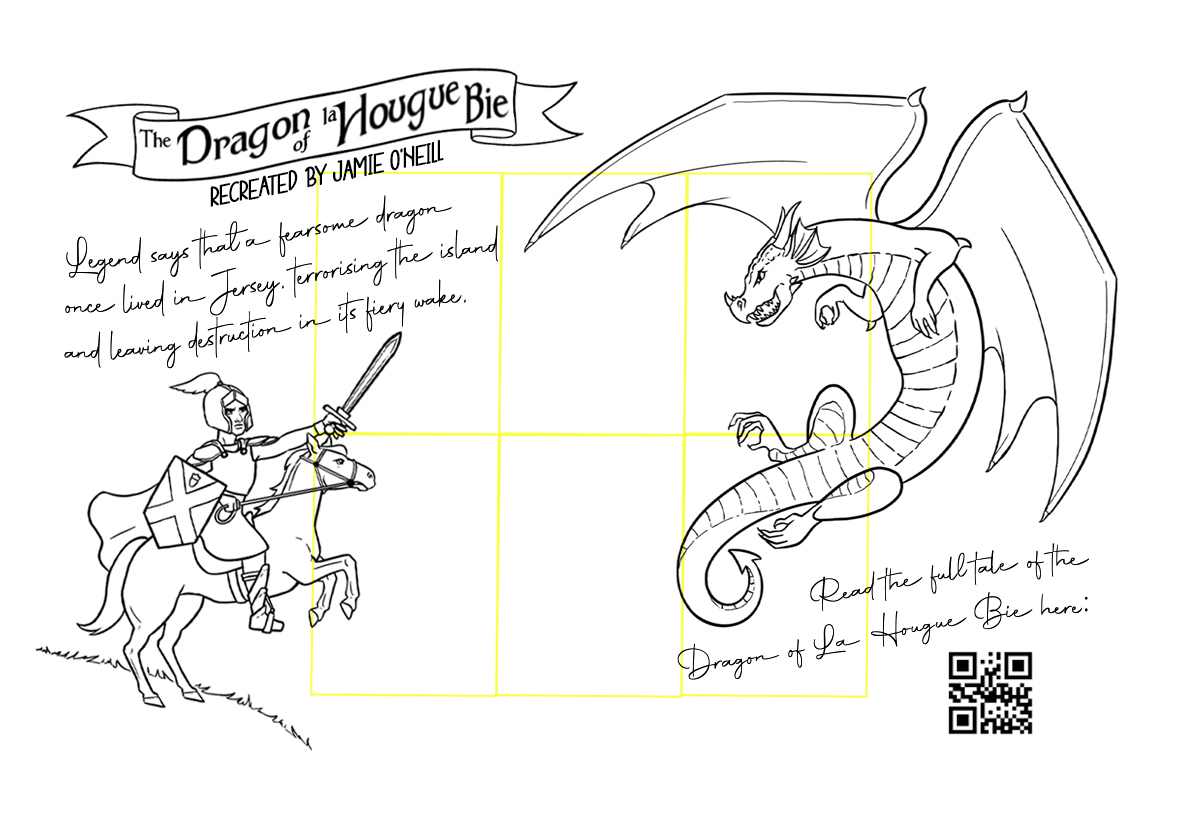 The Dragon of la Hougue Bie
RECREATED BY JAMIE O'NEILL
Legend says that a fearsome dragon
once lived in Jersey, terrorising the island
and leaving destruction in its fiery wake.
Read the full tale of the
Dragon of La Hougue Bie here: